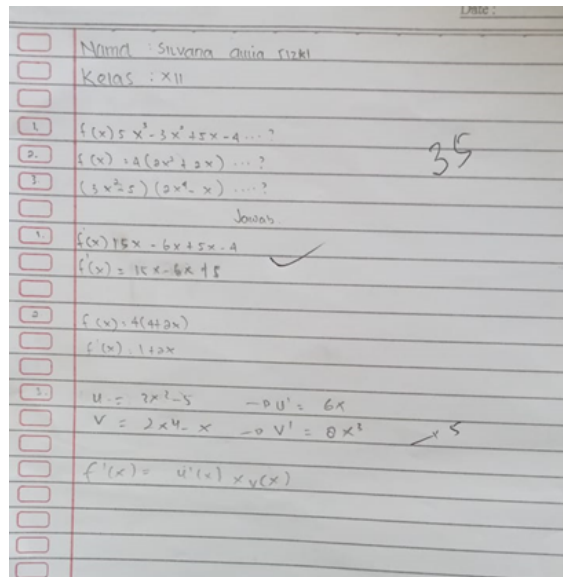 Date :
Nama : Silvana aulia rizki
Kelas : XII
1. f(x) 5x³-3x²+5x-4 ....?
35
2. f(x) = 4(2x²+2x) ....?
3. (3x²-5) (2x⁴-x) ....?
Jawab
1. f'(x) 15x - 6x + 5x - 4
f'(x) = 15x - 6x + 5
2 f(x) = 4(4+2x)
f'(x) = 1+2x
3. u = 3x²-5 → u' = 6x
V = 2x4 - x → V' = 8x³ 5
f'(x) = u'(x) x v(x)